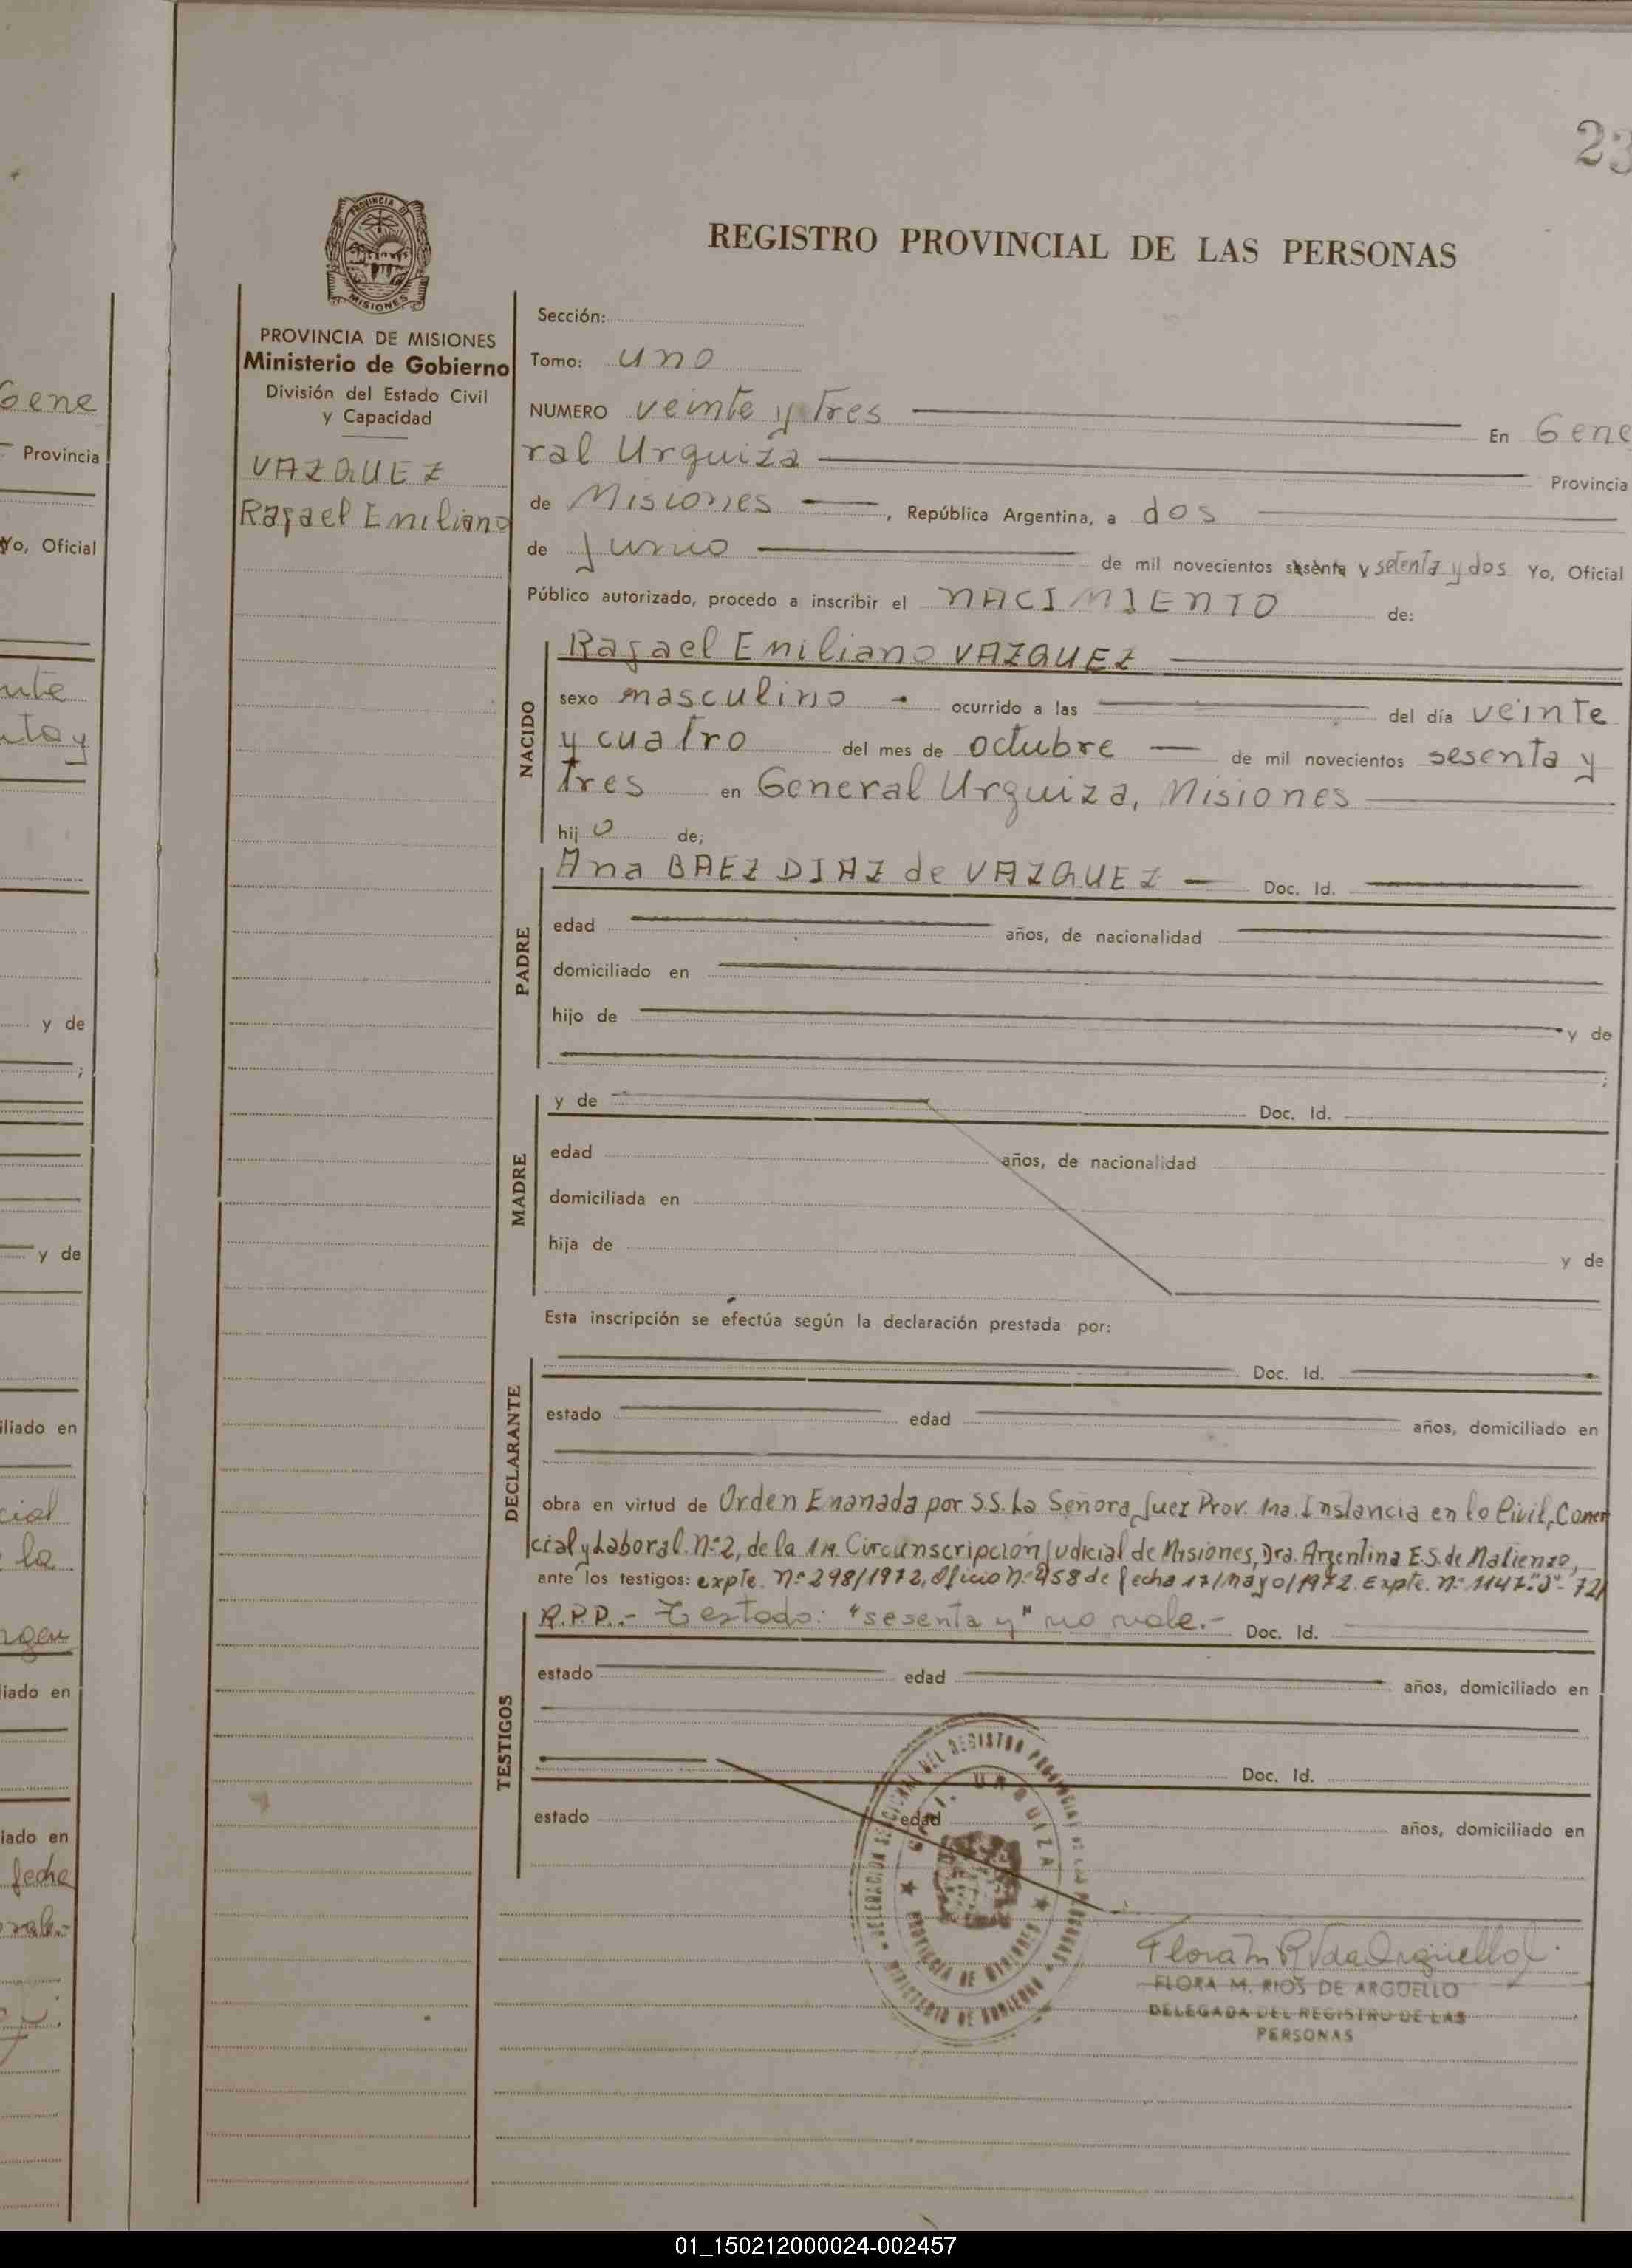 23
REGISTRO PROVINCIAL DE LAS PERSONAS
PROVINCIA DE
MISIONES
PROVINCIA DE MISIONES
Ministerio de Gobierno
División del Estado Civil
y Capacidad
VAZQUEZ
Rafael Emiliano
Sección:
Tomo: uno
NUMERO veinte y tres En Gene
ral Urquiza Provincia
de Misiones, República Argentina, a dos
de Junio de mil novecientos sesenta y setenta y dos Yo, Oficial
Público autorizado, procedo a inscribir el NACIMIENTO de:
NACIDO
Rafael Emiliano VAZQUEZ
sexo masculino - ocurrido a las del día veinte
y cuatro del mes de octubre de mil novecientos sesenta y
tres en General Urquiza, Misiones
hijo de;
PADRE
Ana BAEZ DIAZ de VAZQUEZ Doc. Id.
edad años, de nacionalidad
domiciliado en
hijo de y de
;
MADRE
y de Doc. Id.
edad años, de nacionalidad
domiciliada en
hija de y de
Esta inscripción se efectúa según la declaración prestada por:
DECLARANTE
Doc. Id.
estado edad años, domiciliado en
obra en virtud de Orden Emanada por S.S. La Señora Juez Prov. 1ra. Instancia en lo Civil, Comer
cial y Laboral. Nº2, de la 1ra. Circunscripción Judicial de Misiones, Dra. Argentina E.S. de Matienzo,
ante los testigos: expte. Nº 298/1972, Oficio Nº 458 de fecha 17/Mayo/1972. Expte. Nº 1147-"J"-72/
R.P.P.- Testado: "sesenta y" no vale.- Doc. Id.
TESTIGOS
estado edad años, domiciliado en
Doc. Id.
estado edad años, domiciliado en
DELEGACION SECCIONAL DEL REGISTRO PROVINCIAL DE LAS PERSONAS
GRAL. URQUIZA
PROVINCIA DE MISIONES
MINISTERIO DE GOBIERNO
FLORA M. RIOS DE ARGÜELLO
DELEGADA DEL REGISTRO DE LAS
PERSONAS
Gene
Provincia
Yo, Oficial
y de
;
y de
iliado en
cial
la
iado en
iado en
fecha
01_150212000024-002457